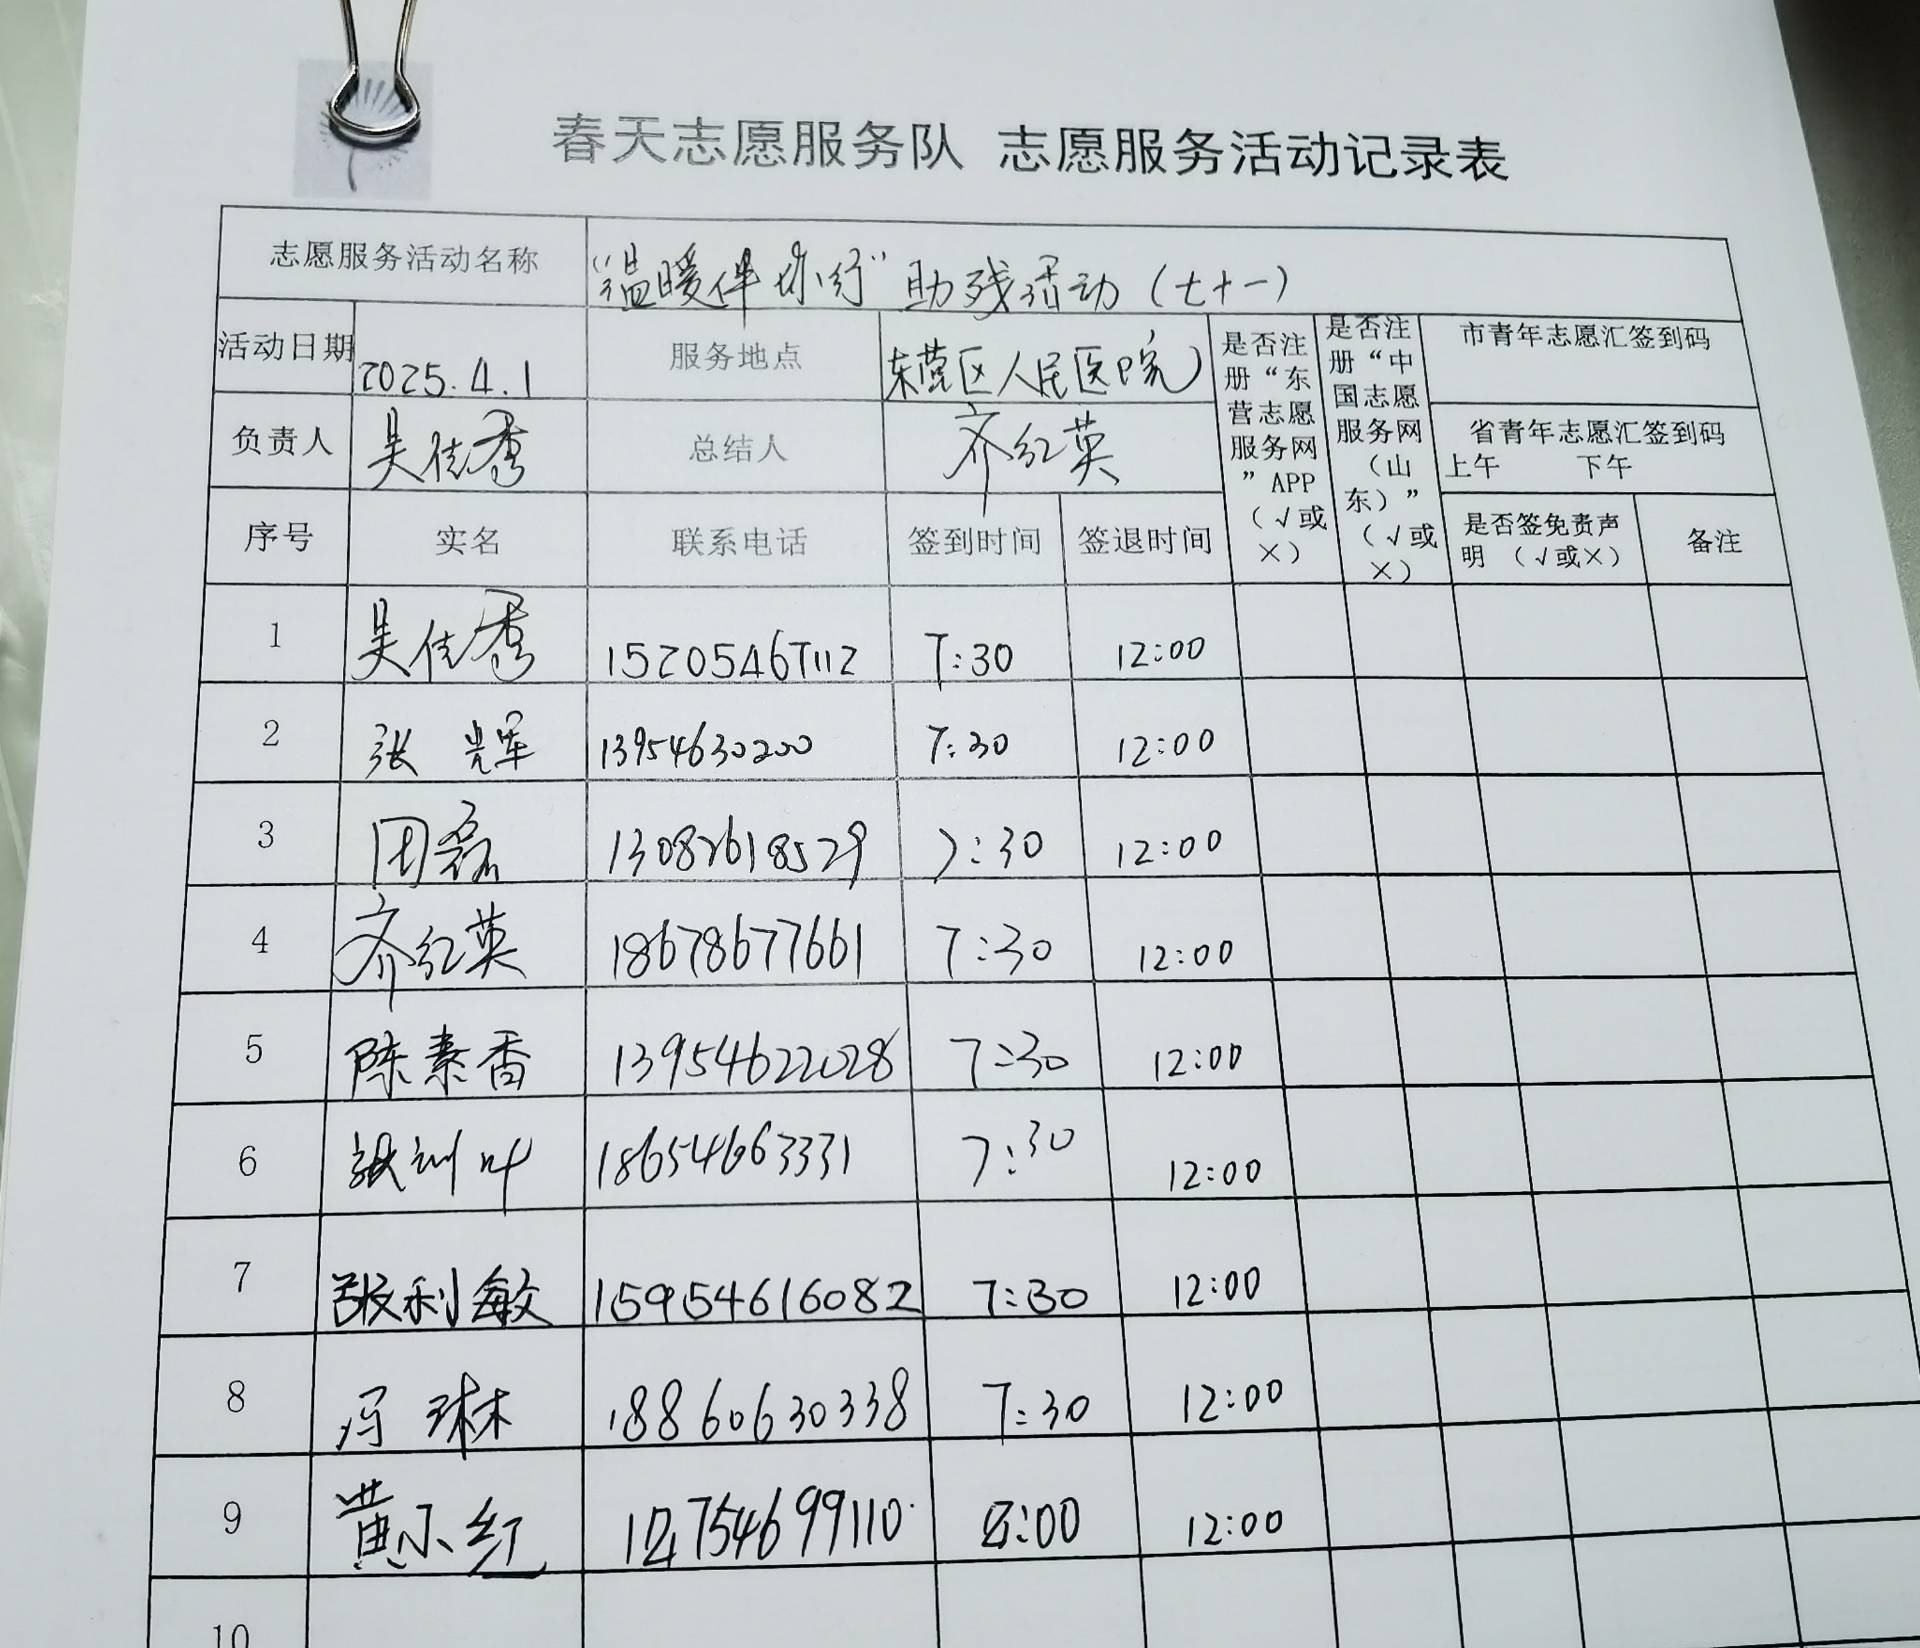 春天志愿服务队 志愿服务活动记录表
志愿服务活动名称 “温暖伴你行”助残活动(七十一)
活动日期 2025.4.1 服务地点 东营区人民医院 是否注册“东营志愿服务网”APP(√或×) 是否注册“中国志愿服务网(山东)”(√或×) 市青年志愿汇签到码
负责人 吴佳秀 总结人 齐红英 省青年志愿汇签到码
上午 下午
序号 实名 联系电话 签到时间 签退时间 是否签免责声明 (√或×) 备注
1 吴佳秀 15205467112 7:30 12:00
2 张辉 13954630200 7:30 12:00
3 田磊 13082618529 7:30 12:00
4 齐红英 18678677661 7:30 12:00
5 陈素香 13954622028 7:30 12:00
6 张训叶 18654663331 7:30 12:00
7 张利敏 15954616082 7:30 12:00
8 冯琳 18860630338 7:30 12:00
9 黄小红 8:00 12:00
10